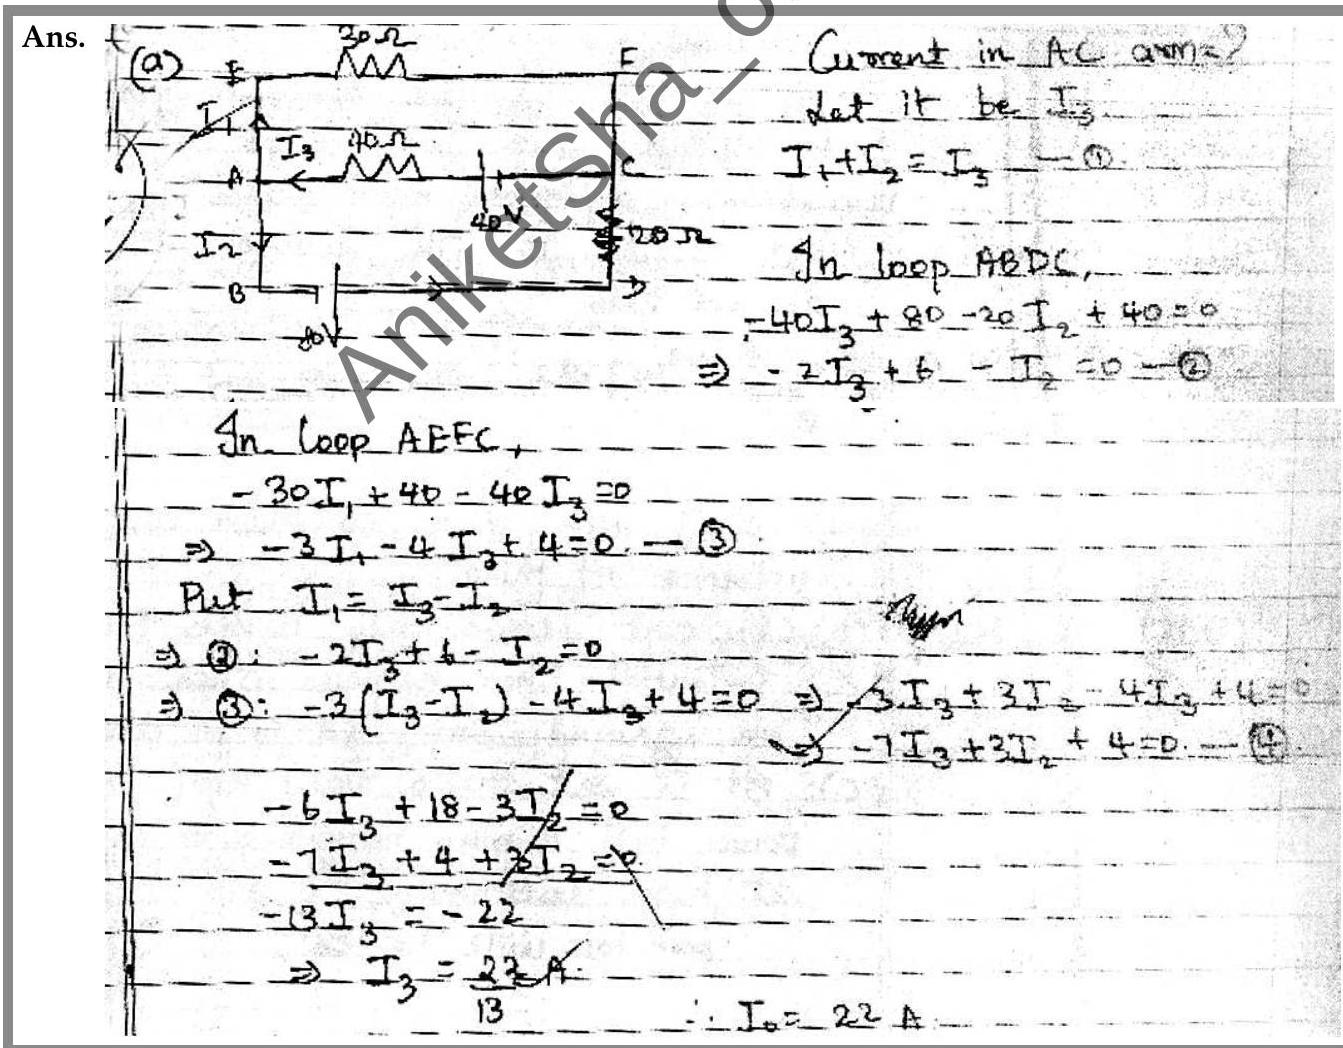 Ans.
(a) E 30Ω F
I₁
I₃ 40Ω
A C
40V
20Ω
I₂
B D
80V
Current in AC arm=?
Let it be I₃
I₁+I₂ = I₃ — ①
In loop ABDC,
-40I₃ + 80 - 20I₂ + 40 = 0
⇒ - 2I₃ + 6 - I₂ = 0 — ②
In loop AEFC,
- 30I₁ + 40 - 40I₃ = 0
⇒ -3I₁ - 4I₃ + 4 = 0. — ③
Put I₁ = I₃ - I₂
⇒ ②: -2I₃ + 6 - I₂ = 0
⇒ ③: -3(I₃-I₂) - 4I₃ + 4 = 0 ⇒ -3I₃ + 3I₂ - 4I₃ + 4 = 0
⇒ -7I₃ + 3I₂ + 4 = 0. — ④
-6I₃ + 18 - 3I₂ = 0
-7I₃ + 4 + 3I₂ = 0
-13I₃ = -22
⇒ I₃ = 22/13 A.
∴ I₀ = 22 A
AniketSha_o